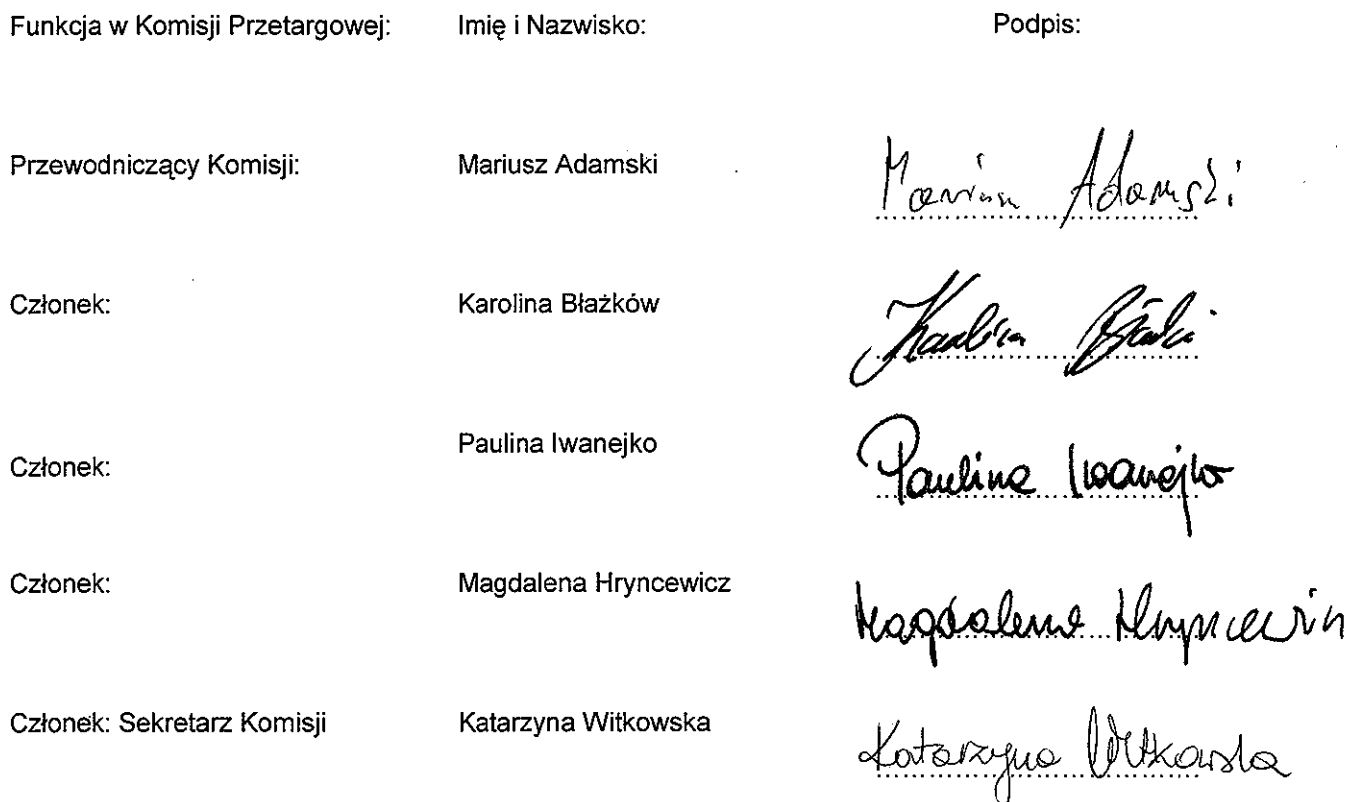 Funkcja w Komisji Przetargowej: Imię i Nazwisko: Podpis:
Przewodniczący Komisji: Mariusz Adamski Mariusz Adamski
Członek: Karolina Błażków Karolina
Członek: Paulina Iwanejko Paulina Iwanejko
Członek: Magdalena Hryncewicz Magdalena Hryncewicz
Członek: Sekretarz Komisji Katarzyna Witkowska Katarzyna Witkowska